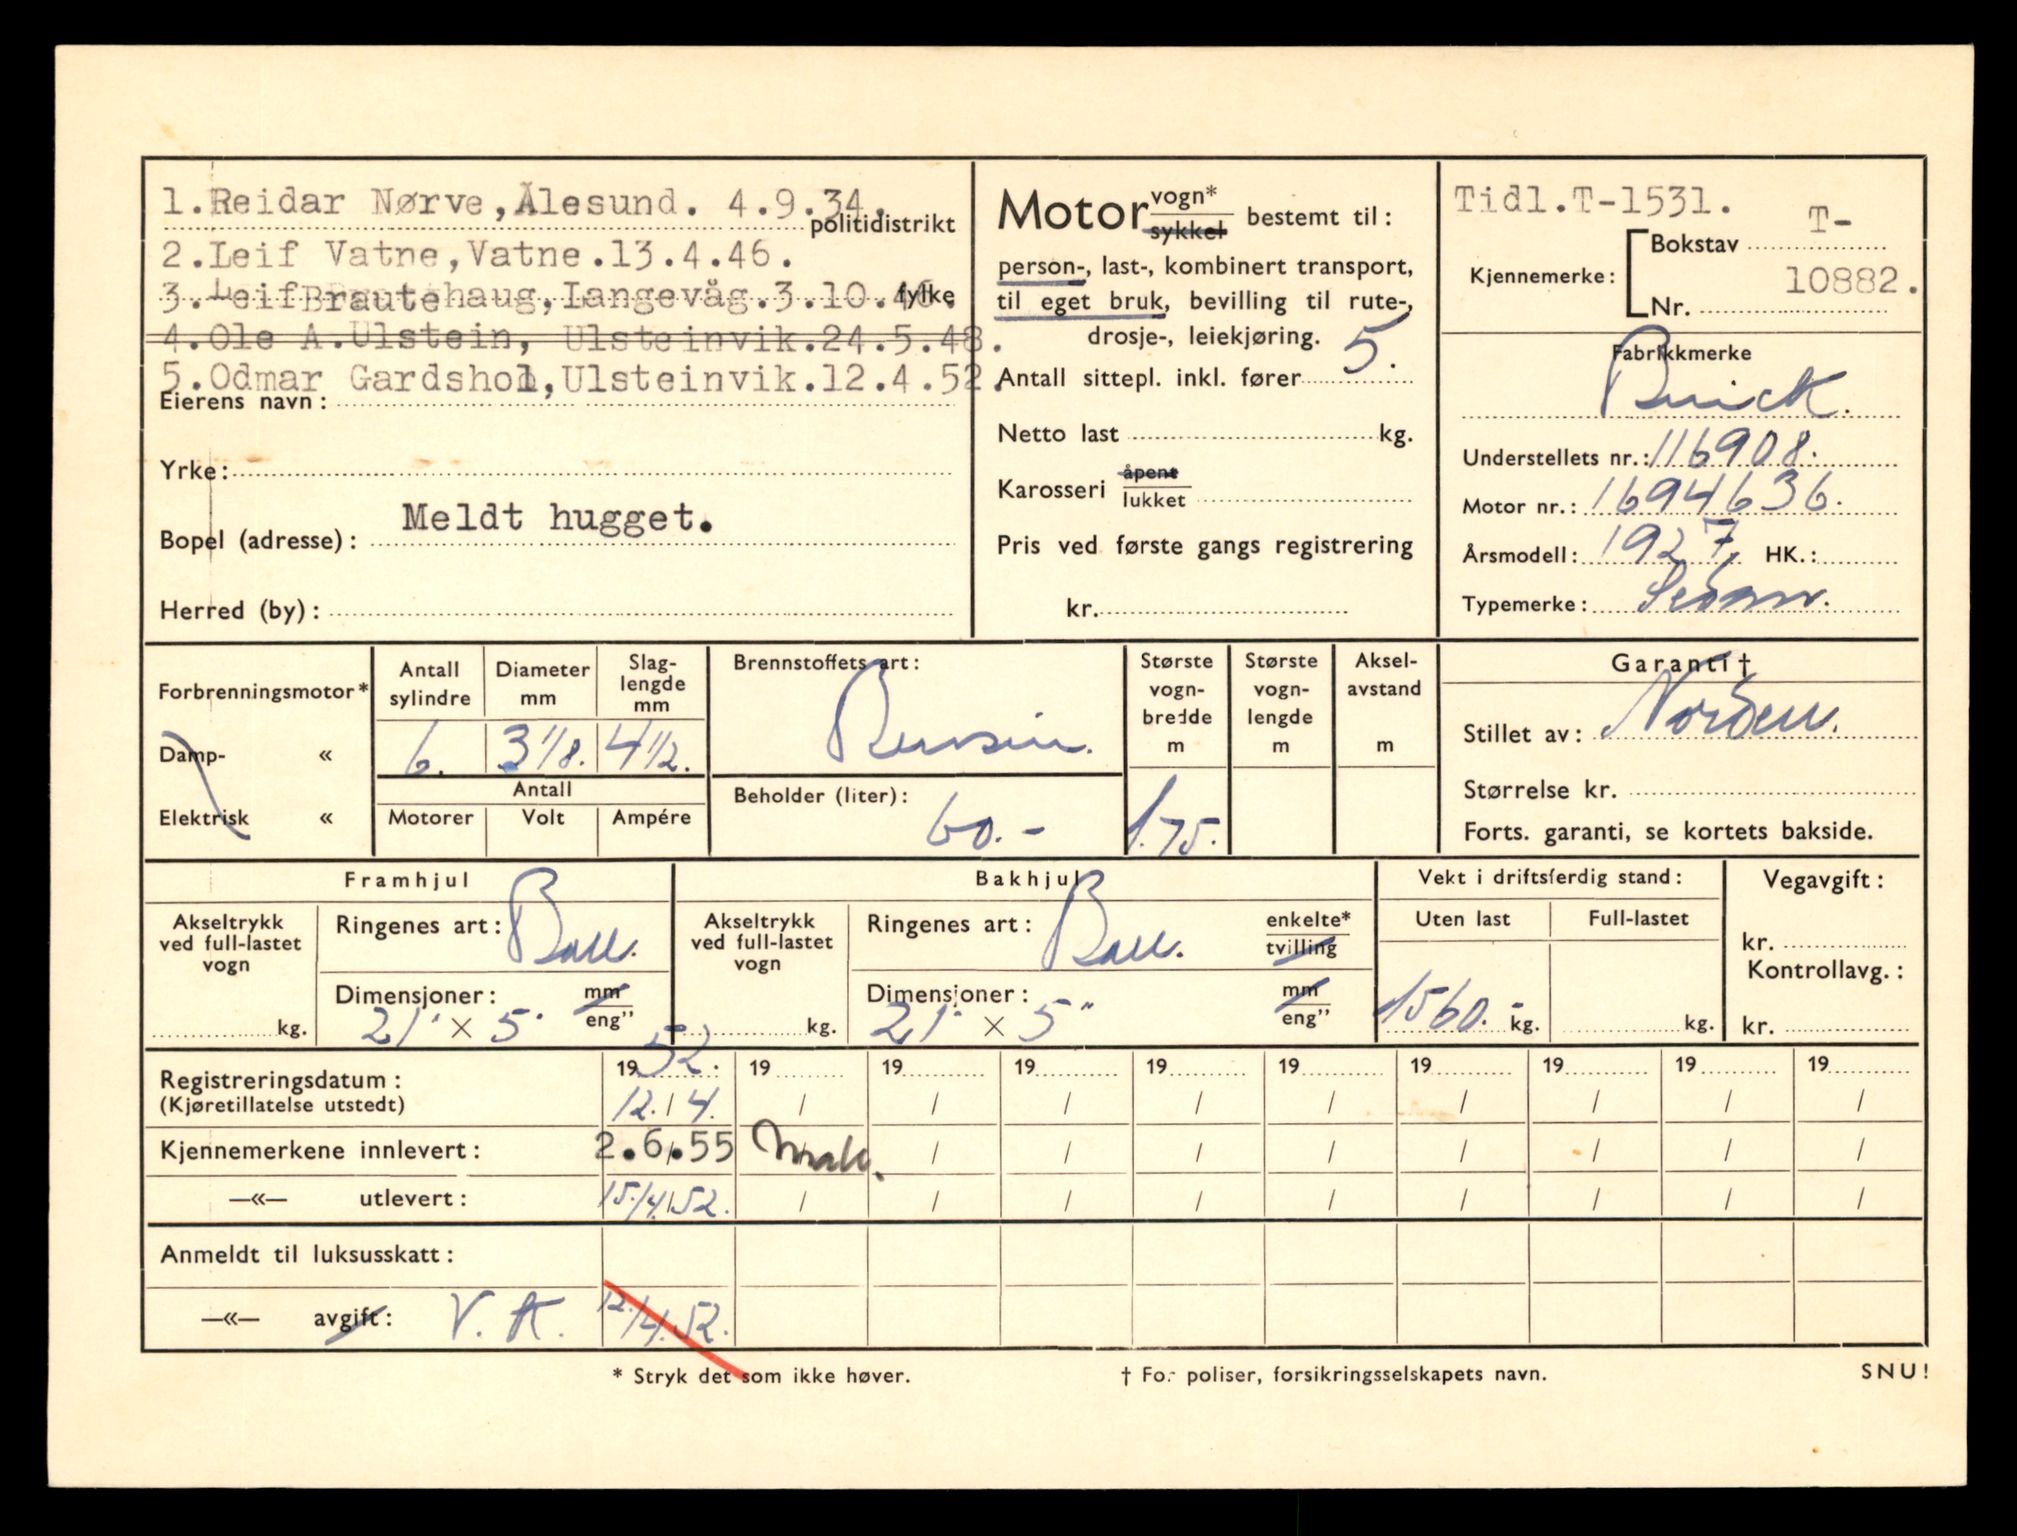 1.Reidar Nørve,Ålesund. 4.9.34.
politidistrikt
2.Leif Vatne,Vatne.13.4.46.
3.Leif Brautehaug,Langevåg.3.10.46.
fylke
4.Ole A.Ulstein, Ulsteinvik.24.5.48.
5.Odmar Gardshol,Ulsteinvik.12.4.52.
Eierens navn:
Yrke:
Meldt hugget.
Bopel (adresse):
Herred (by):
Motor vogn* / sykkel bestemt til:
person-, last-, kombinert transport,
til eget bruk, bevilling til rute-,
drosje-, leiekjøring.
Antall sittepl. inkl. fører 5.
Netto last kg.
Karosseri åpent / lukket
Pris ved første gangs registrering
kr.
Tidl.T-1531.
Kjennemerke: Bokstav T-
Nr. 10882.
Fabrikkmerke
Buick.
Understellets nr.: 116908.
Motor nr.: 1694636.
Årsmodell: 1927, HK.:
Typemerke: Sedan.
Forbrenningsmotor*
Damp- «
Elektrisk «
Antall sylindre
Diameter mm
Slag- lengde mm
6. 3 1/8. 4 1/2.
Antall
Motorer Volt Ampére
Brennstoffets art:
Bensin.
Beholder (liter):
60.-
Største vogn- bredde m
1.75.
Største vogn- lengde m
Aksel- avstand m
Garanti †
Stillet av: Norden.
Størrelse kr.
Forts. garanti, se kortets bakside.
Framhjul
Akseltrykk ved full-lastet vogn
kg.
Ringenes art: Ball.
Dimensjoner: mm / eng"
21" × 5"
Bakhjul
Akseltrykk ved full-lastet vogn
kg.
Ringenes art: Ball. enkelte* / tvilling
Dimensjoner: mm / eng"
21" × 5"
Vekt i driftsferdig stand:
Uten last Full-lastet
1560.- kg. kg.
Vegavgift:
kr.
Kontrollavg.:
kr.
Registreringsdatum: 1952. 19 19 19 19 19 19 19 19 19
(Kjøretillatelse utstedt) 12./4. / / / / / / / / /
Kjennemerkene innlevert: 2.6.55 / / / / / / / /
—«— utlevert: 15/4.52. / / / / / / / / /
Anmeldt til luksusskatt:
—«— avgift: V.K. 12./4.52.
* Stryk det som ikke høver.
† For poliser, forsikringsselskapets navn.
SNU!